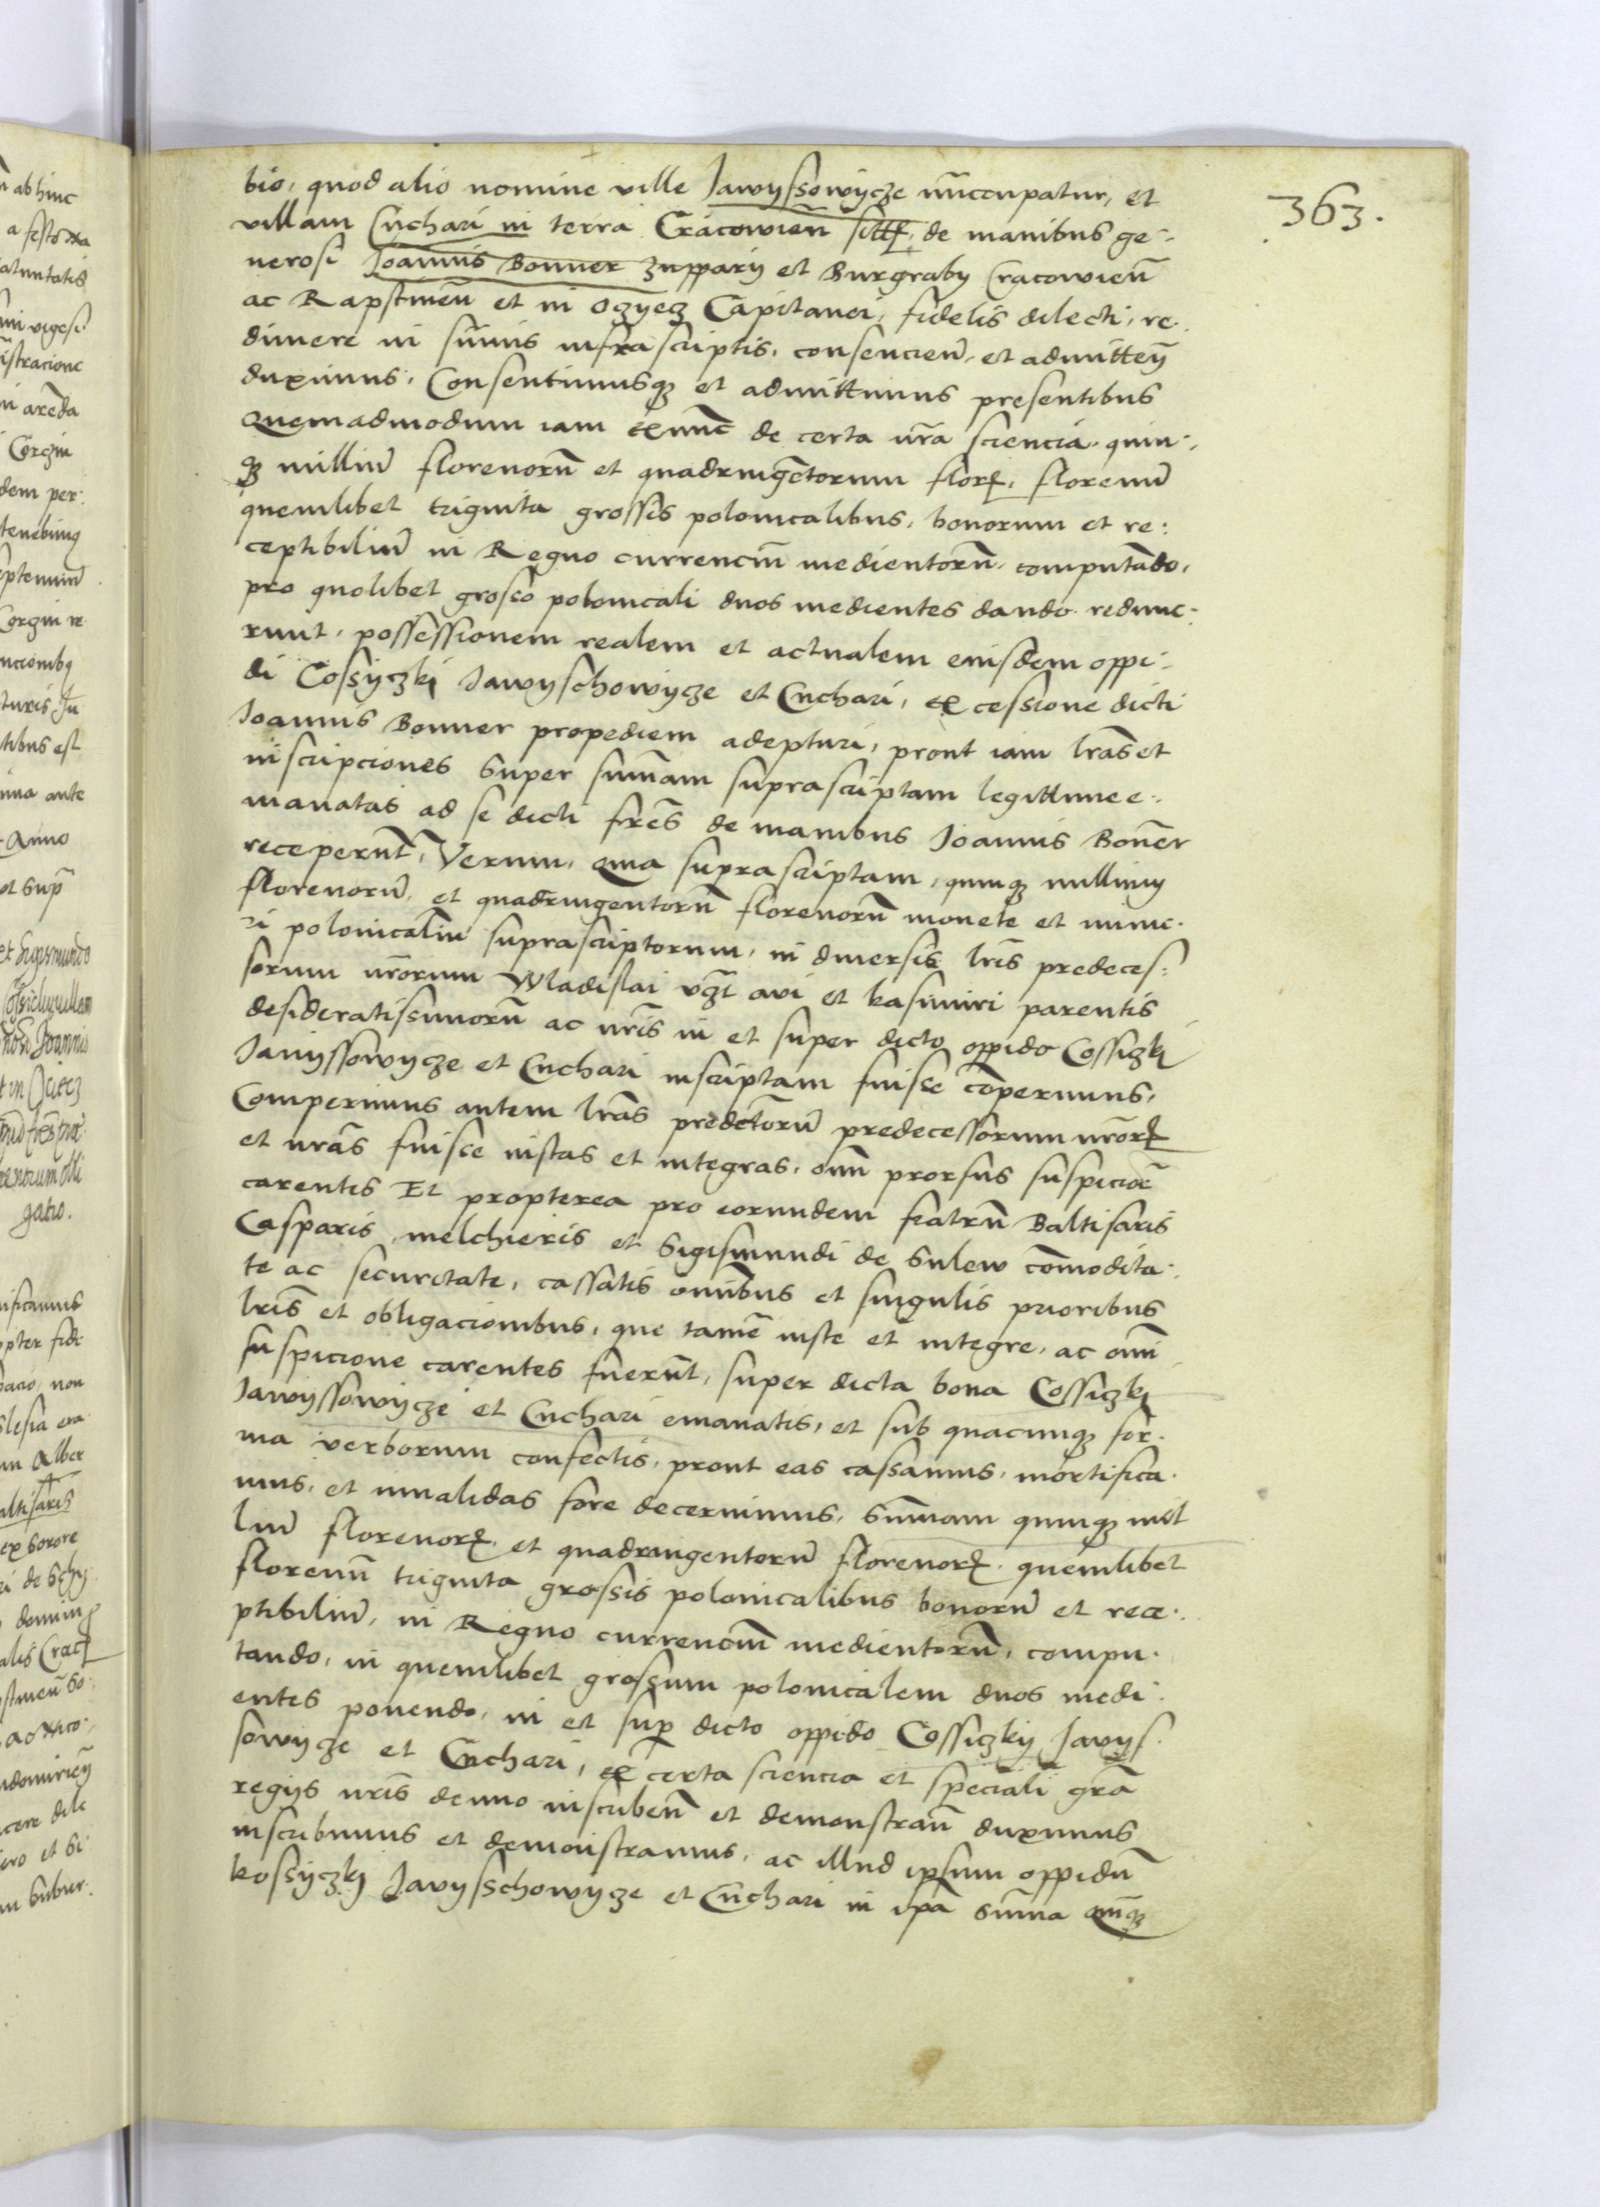 363.
bio, quod alio nomine ville Jawyssowycze nūccupatur, et
villam Cuchari in terra Cracowieñ sitt de manibus ge-
nerosi Joannis Bonner zupparij et Burgrabij Cracowieñ
ac Rapstineñ et in Oczyecz Capitanei, fidelis dilecti, re-
dimere in sūmis infrascriptis, consencieñ et admitteñ
duximus, Consentimusq3 et admittimus presentibus
Quemadmodum iam exnūc de certa nr̄a sciencia quin-
q3 milliū florenorū et quadringētorum flor, florenū
quemlibet triginta grossis polonicalibus, bonorum et re-
ceptibiliū in Regno currenciū medientorū, computādo,
pro quolibet grosso polonicali duos medientes dando redime-
runt, possessionem realem et actualem eiusdem oppi-
di Cosyczki Jawyschowycze et Cuchari, ex cessione dicti
Joannis Bonner propediem adepturi, prout iam lr̄as et
inscripciones super sum̄am suprascriptam legittime e-
manatas ad se dicti fr̄es de manibus Joannis Bon̄er
receperūt, Verum, quia suprascriptam, quinq3 millium
florenorū, et quadringentorū florenorū monete et nume-
ri polonicaliū suprascriptorum, in diversis lr̄is predeces-
sorum nr̄orum Wladislai vꝫt avi et kasimiri parentis
desideratissimorū ac nr̄is in et super dicto oppido Cossiczki
Jawyssowycze et Cuchari inscriptam fuisse cōperimus,
Comperimus autem lr̄as predictorū predecessorum nr̄or
et nr̄as fuisse iustas et integras, om̄i prorsus suspicioē
carentes Et propterea pro eorundem fratrū Baltisaris
Casparis, melchieris et Sigismundi de Sulew cōmodita-
te ac securitate, cassatis om̄ibus et singulis prioribus
lr̄is et obligacionibus, que tamē iuste et integre, ac om̄i
suspicione carentes fuerūt, super dicta bona Cossiczki
Jawyssowycze et Cuchari emanatis, et sub quacunq3 for-
ma verborum confectis, prout eas cassamus, mortifica-
mus, et invalidas fore decernimus, Sum̄am quinq3 mil
liū florenor, et quadringentorū florenor quemlibet
florenū triginta grossis polonicalibus bonorū et rece-
ptibiliū, in Regno currenciū medientorū, compu-
tando, in quemlibet grossum polonicalem duos medi-
entes ponendo, in et sup dicto oppido Cossiczkij Jawys-
sowycze et Cuchari, ex certa sciencia et speciali gr̄a
regijs nr̄is denuo inscribeñ et demonstrañ duximus
inscribimus et demonstramus, ac illud ipsum oppidū
kossyczkj Jawysschowycze et Cuchari in ip̄a sum̄a quīq3